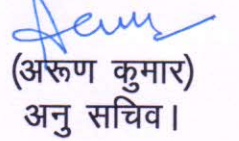 (अरूण कुमार)
अनु सचिव।